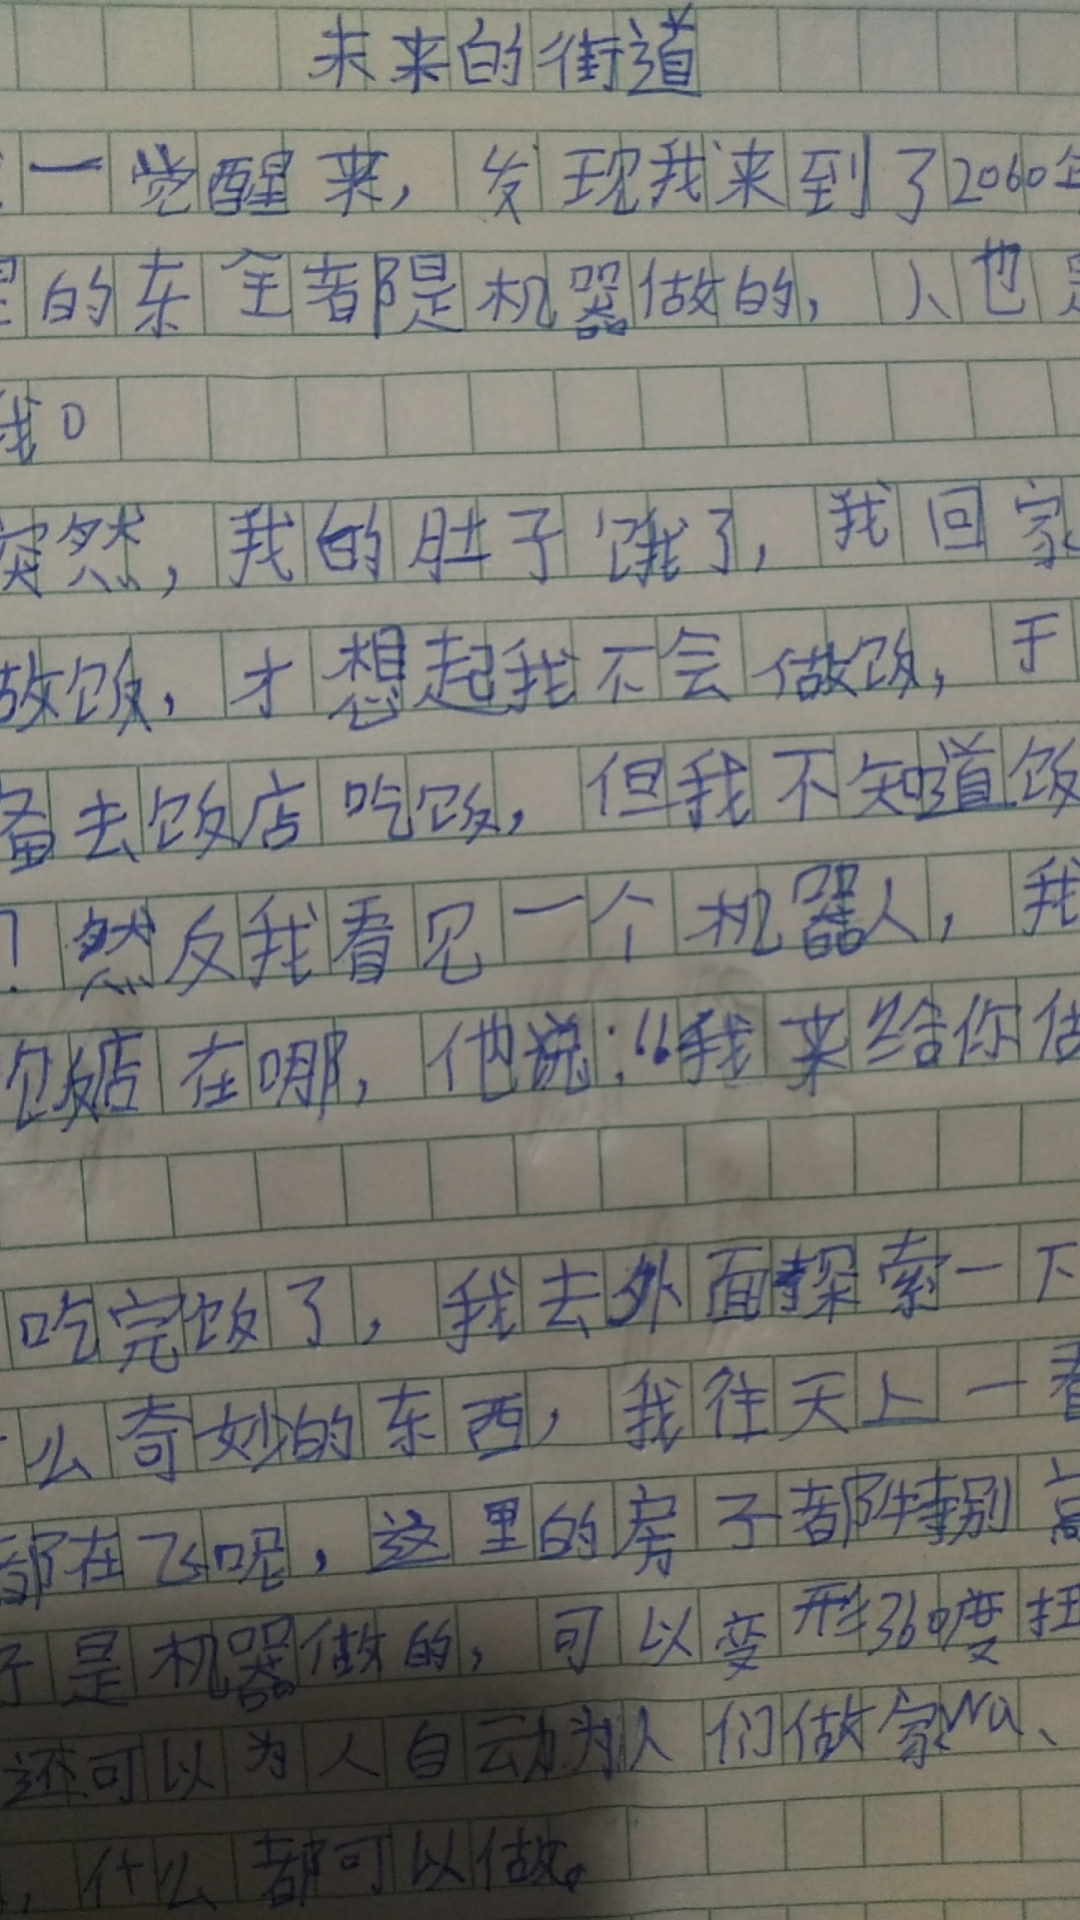 未来的街道
一觉醒来，发现我来到了2060年
的东全都是机器做的，人也是
我。
突然，我的肚子饿了，我回家
做饭，才想起我不会做饭，于
备去饭店吃饭，但我不知道饭
？然反我看见一个机器人，我
饭店在哪，他说：“我来给你做
吃完饭了，我去外面探索一下
么奇妙的东西，我往天上一看
都在飞呢，这里的房子都特别高
子是机器做的，可以变形360度扭
还可以为人自动为人们做家Wu、
，什么都可以做。